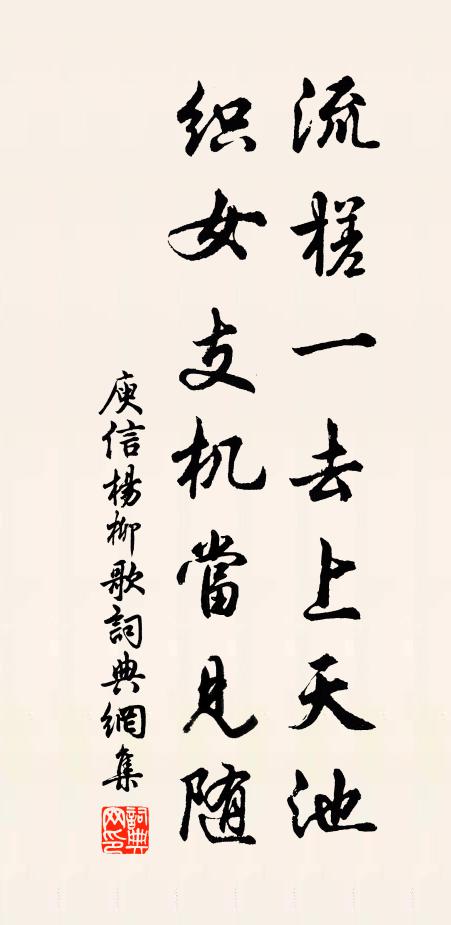 流槎一去上天池
织女支机當見随
庾信楊柳歌詞典網集
詞典网印